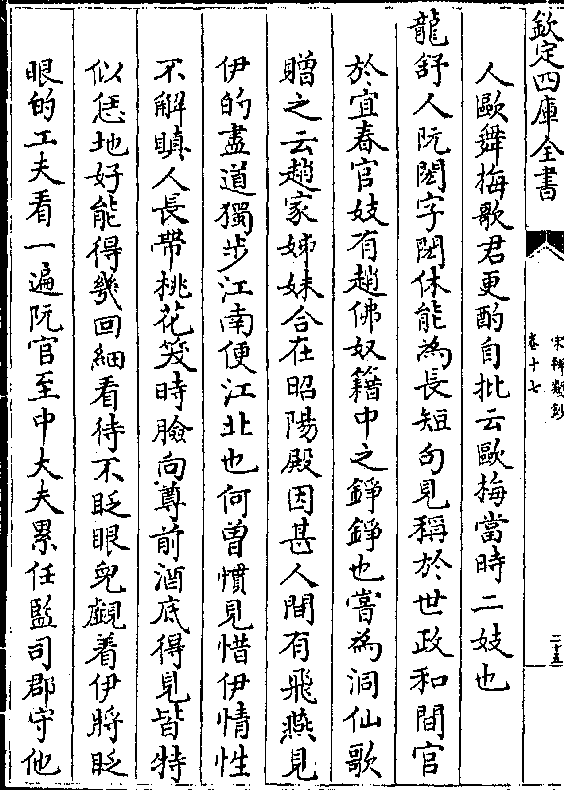 欽定四庫全書
宋稗類鈔
卷十七
二十五
人歐舞梅歌君更酌自批云歐梅當時二妓也
龍舒人阮閎字閎休能為長短句見稱於世政和間官
於宜春官妓有趙佛奴籍中之錚錚也嘗為洞仙歌
贈之云趙家姊妹合在昭陽殿因甚人間有飛燕見
伊的盡道獨步江南便江北也何曾慣見惜伊情性
不解瞋人長帶桃花笑時臉向尊前酒底得見皆特
似恁地好能得幾回細看待不眨眼兒覷着伊將眨
眼的工夫看一遍阮官至中大夫累任監司郡守他